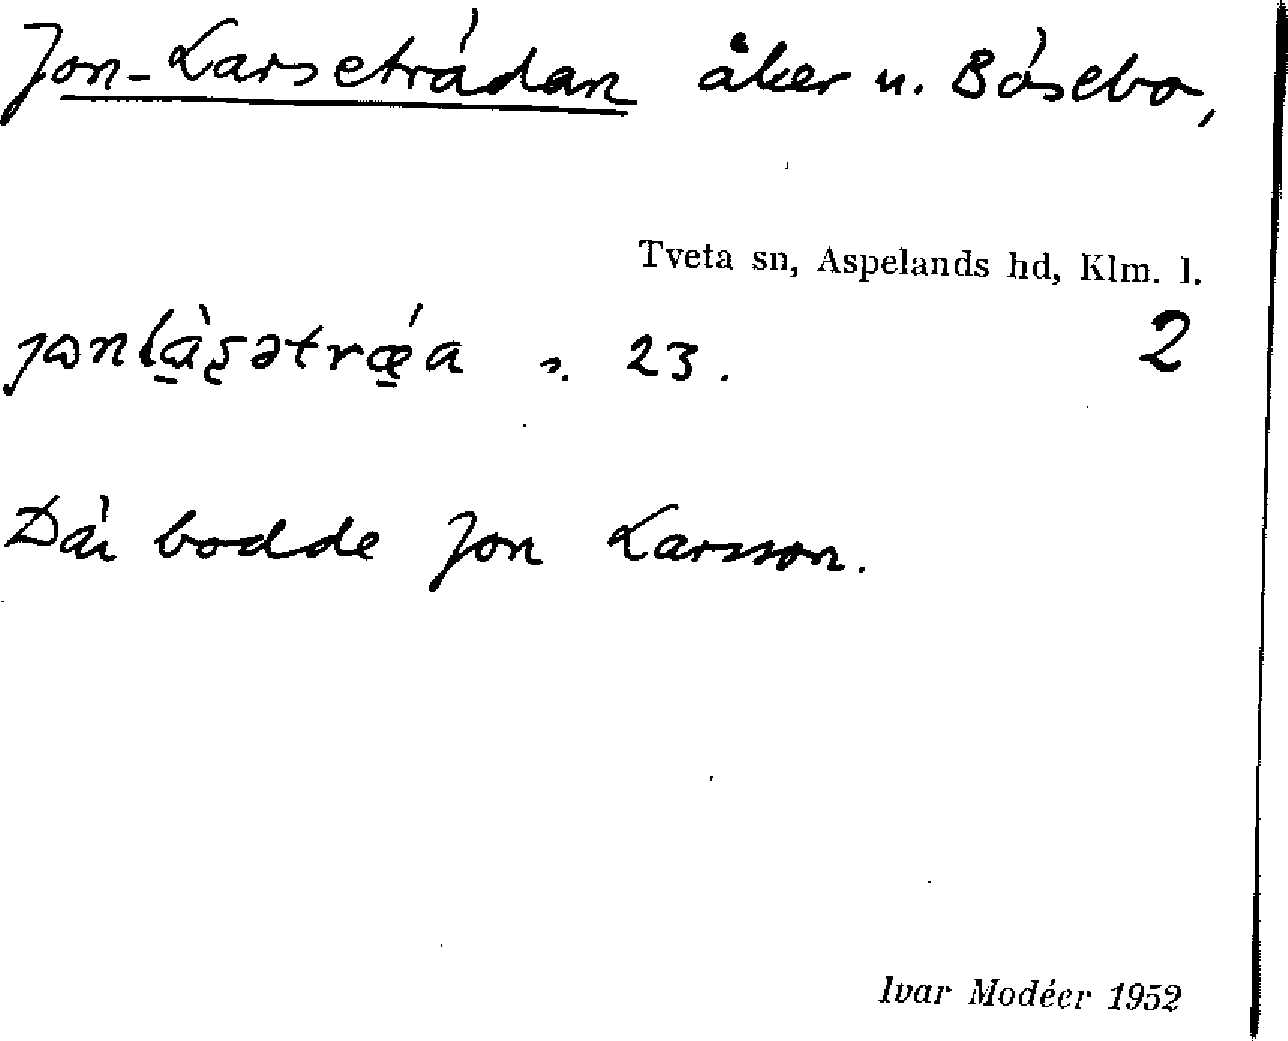 Jon-Larseträdan åker u. Bösebo,
Tveta sn, Aspelands hd, Klm. l.
2
23.
Där bodde Jon Larsson.
Ivar Modéer 1952